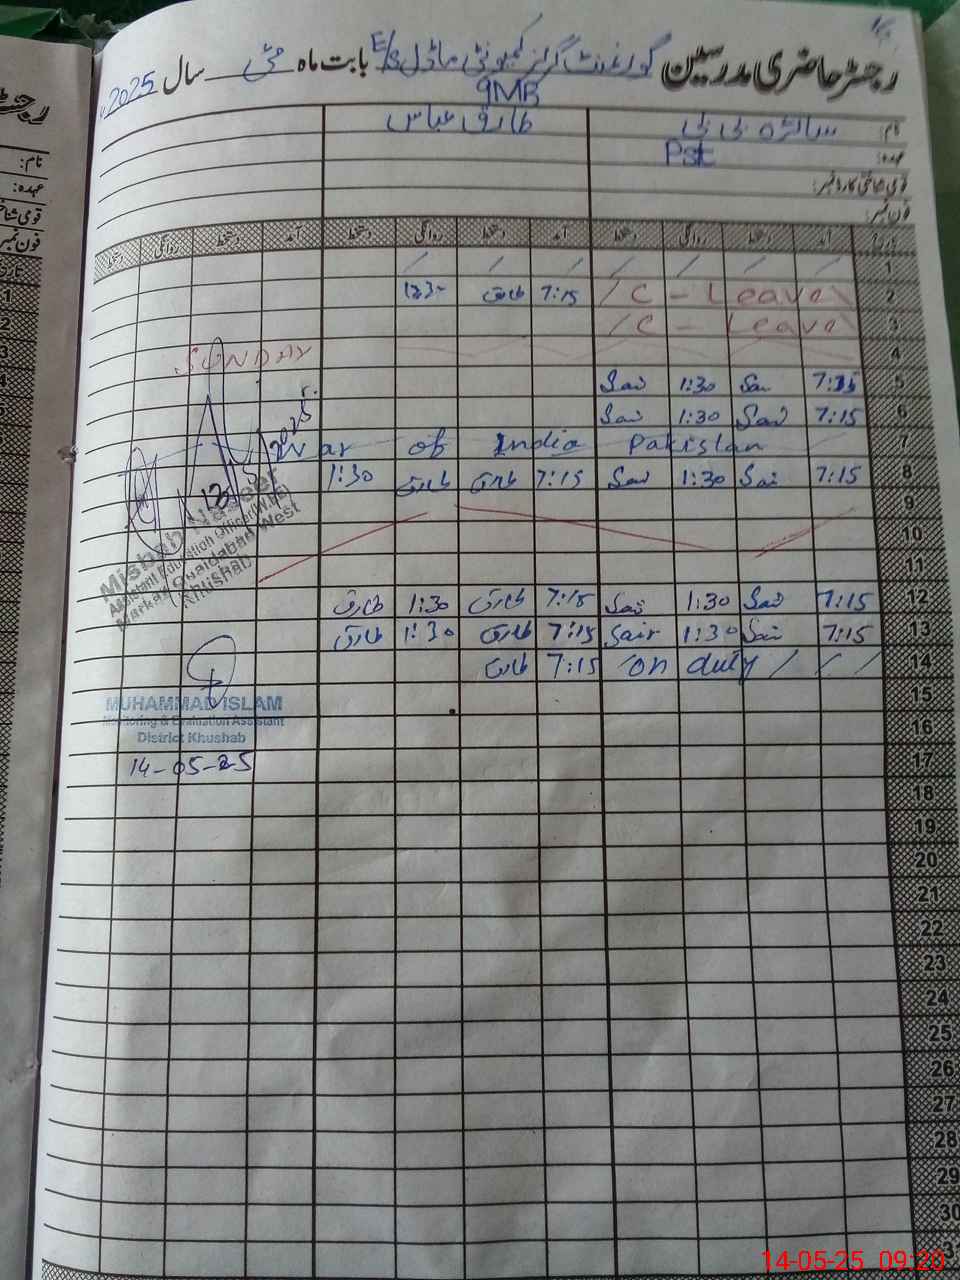 رجسٹر حاضری مدرسین گورنمنٹ گرلز کمیونٹی ماڈل E/S بابت ماہ مئی سال 2025
9MB
نام: سائرہ بی بی طارق عباس
عہدہ: Pst
قومی شناختی کارڈ نمبر:
فون نمبر:
تاریخ آمد دستخط روانگی دستخط آمد دستخط روانگی دستخط آمد دستخط روانگی دستخط
1 / / / / / / /
2 / C - Leave 7:15 طارق 12:30
3 / C - Leave
4 SUNDAY
5 7:15 Sai 1:30 Sai
6 7:15 Sai 1:30 Sai
7 War of India Pakistan
8 7:15 Sai 1:30 Sai 7:15 طارق طارق 1:30
9
10
11
12 7:15 Sai 1:30 Sai 7:15 طارق 1:30 طارق
13 7:15 Sai 1:30 Sair 7:15 طارق 1:30 طارق
14 / on duty / / / 7:15 طارق
15
16
17
18
19
20
21
22
23
24
25
26
27
28
29
30
Misbah
Assistant Education Officer (W-EE)
Markaz Quaidabad West
Khushab
MUHAMMAD ISLAM
Monitoring & Evaluation Assistant
District Khushab
14-05-25
نام:
عہدہ:
قومی شناخ
فون نمبر
14-05-25 09:20